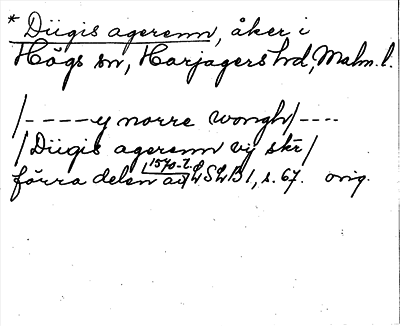 * Diigis agerenn, åker i
Högs sn, Harjagers hd, Malm. l.
/----y norre wongh/----
/Diigis agerenn vij skr/
förra delen av 1570-t. LSLB 1, s. 67. orig.